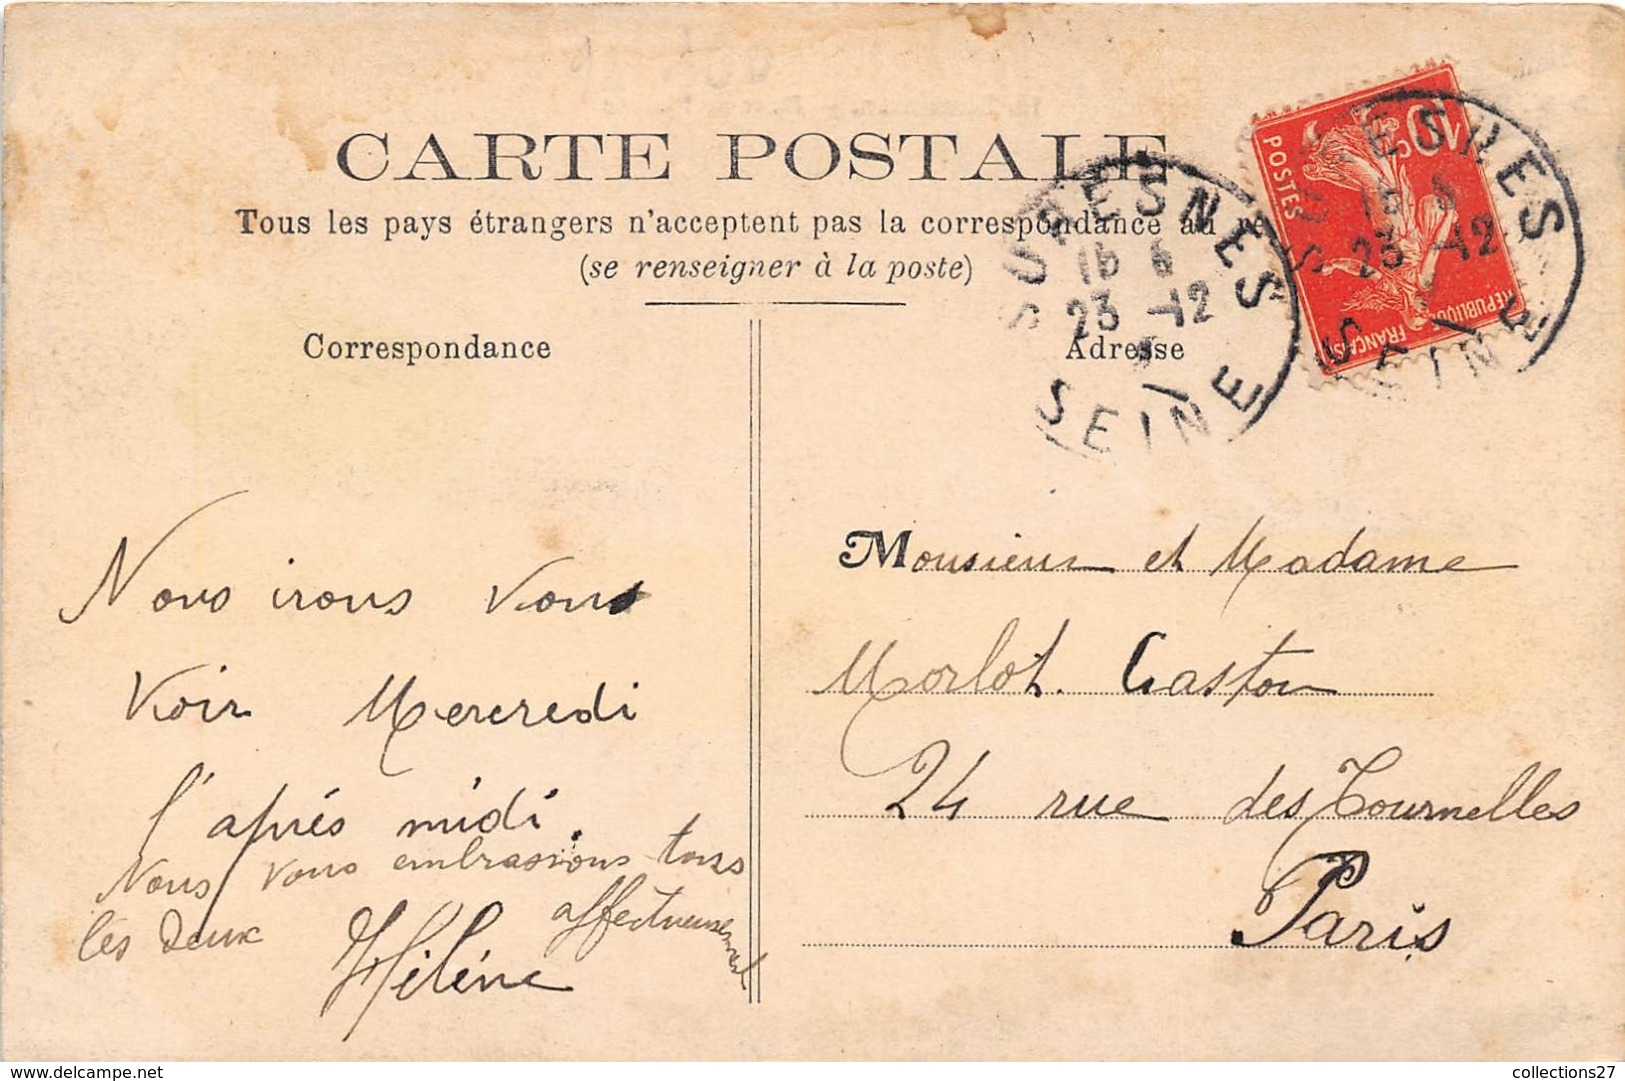 CARTE POSTALE
Tous les pays étrangers n'acceptent pas la correspondance au
(se renseigner à la poste)
Correspondance
Adresse
SURESNES
23 -12
SEINE
10c
POSTES
REPUBLIQUE
FRANCAISE
SURESNES
23 -12
SEINE
Nous irons vous
voir Mercredi
l'après midi.
Nous vous embrassons tous
les deux affectueusement
Hélène
Monsieur et Madame
Morlot. Gaston
24 rue des Tournelles
Paris
www.delcampe.net
collections27